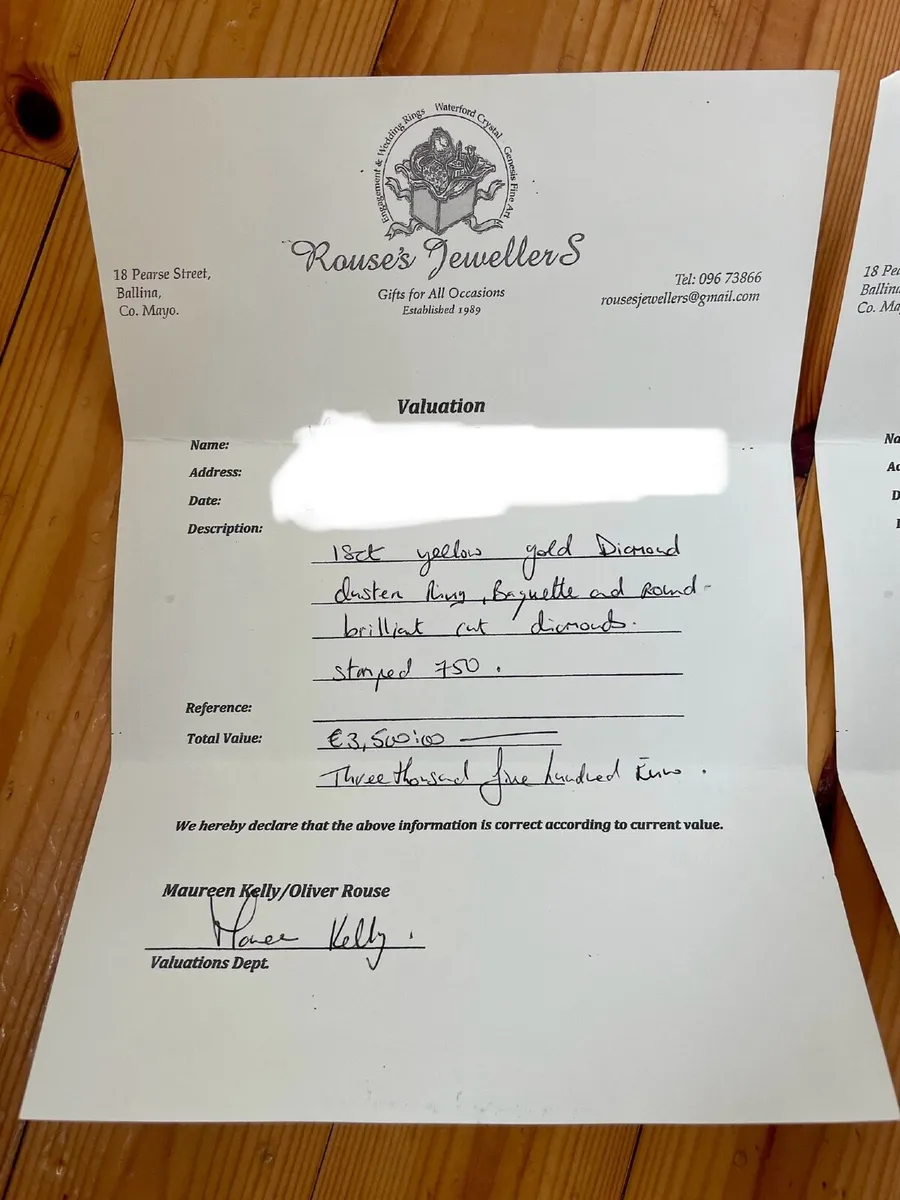 Engagement & Wedding Rings Waterford Crystal Genesis Fine Art
Rouse's JewellerS
Gifts for All Occasions
Established 1989
18 Pearse Street,
Ballina,
Co. Mayo.
Tel: 096 73866
rousesjewellers@gmail.com
Valuation
Name:
Address:
Date:
Description:
18ct yellow gold Diamond
cluster Ring, Baguette and Round
brilliant cut diamonds.
stamped 750.
Reference:
Total Value: €3,500:00
Three thousand five hundred Euro.
We hereby declare that the above information is correct according to current value.
Maureen Kelly/Oliver Rouse
Kelly.
Valuations Dept.
18 Pea
Ballina
Co. Ma
Na
Ad
D